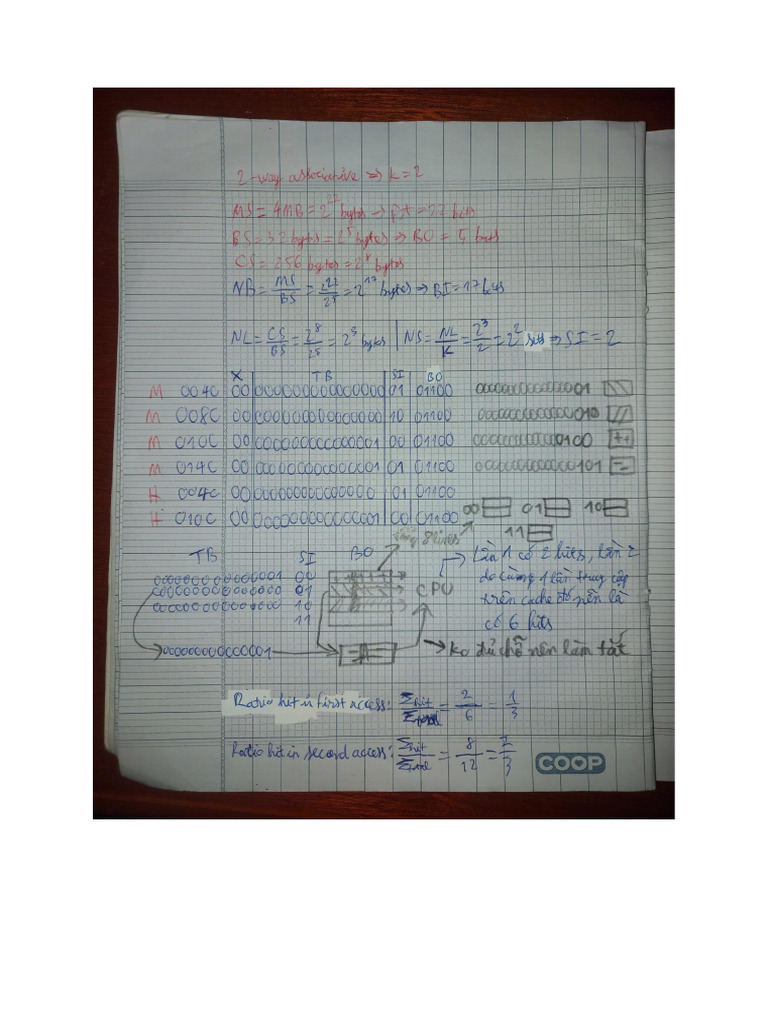 2-way associative => k=2
MS = 4MB = 2^22 bytes -> pt = 22 bits
BS = 32 bytes = 2^5 bytes => BO = 5 bits
CS = 256 bytes = 2^8 bytes
NB = MS/BS = 2^22/2^5 = 2^17 bytes => BI = 17 bits
NL = CS/BS = 2^8/2^5 = 2^3 bytes | NS = NL/K = 2^3/2 = 2^2 sets => SI = 2
X TB SI BO
M 004C 00 000000000000000 01 01100
M 008C 00 000000000000000 10 01100
M 010C 00 000000000000001 00 01100
M 014C 00 000000000000001 01 01100
H 004C 00 000000000000000 01 01100
H 010C 00 000000000000001 00 01100
00 01 10
11
8 lines
TB SI BO
000000000000001 00
000000000000000 01
000000000000000 10
11
000000000000001
CPU
Lần 1 có 2 hits, lần 2
do cùng 1 lần truy cập
trên cache đó nên là
có 6 hits
ko đủ chỗ nên làm tắt
Ratio hit in first access: Σhit/Σtotal = 2/6 = 1/3
Ratio hit in second access: Σhit/Σtotal = 8/12 = 2/3
COOP